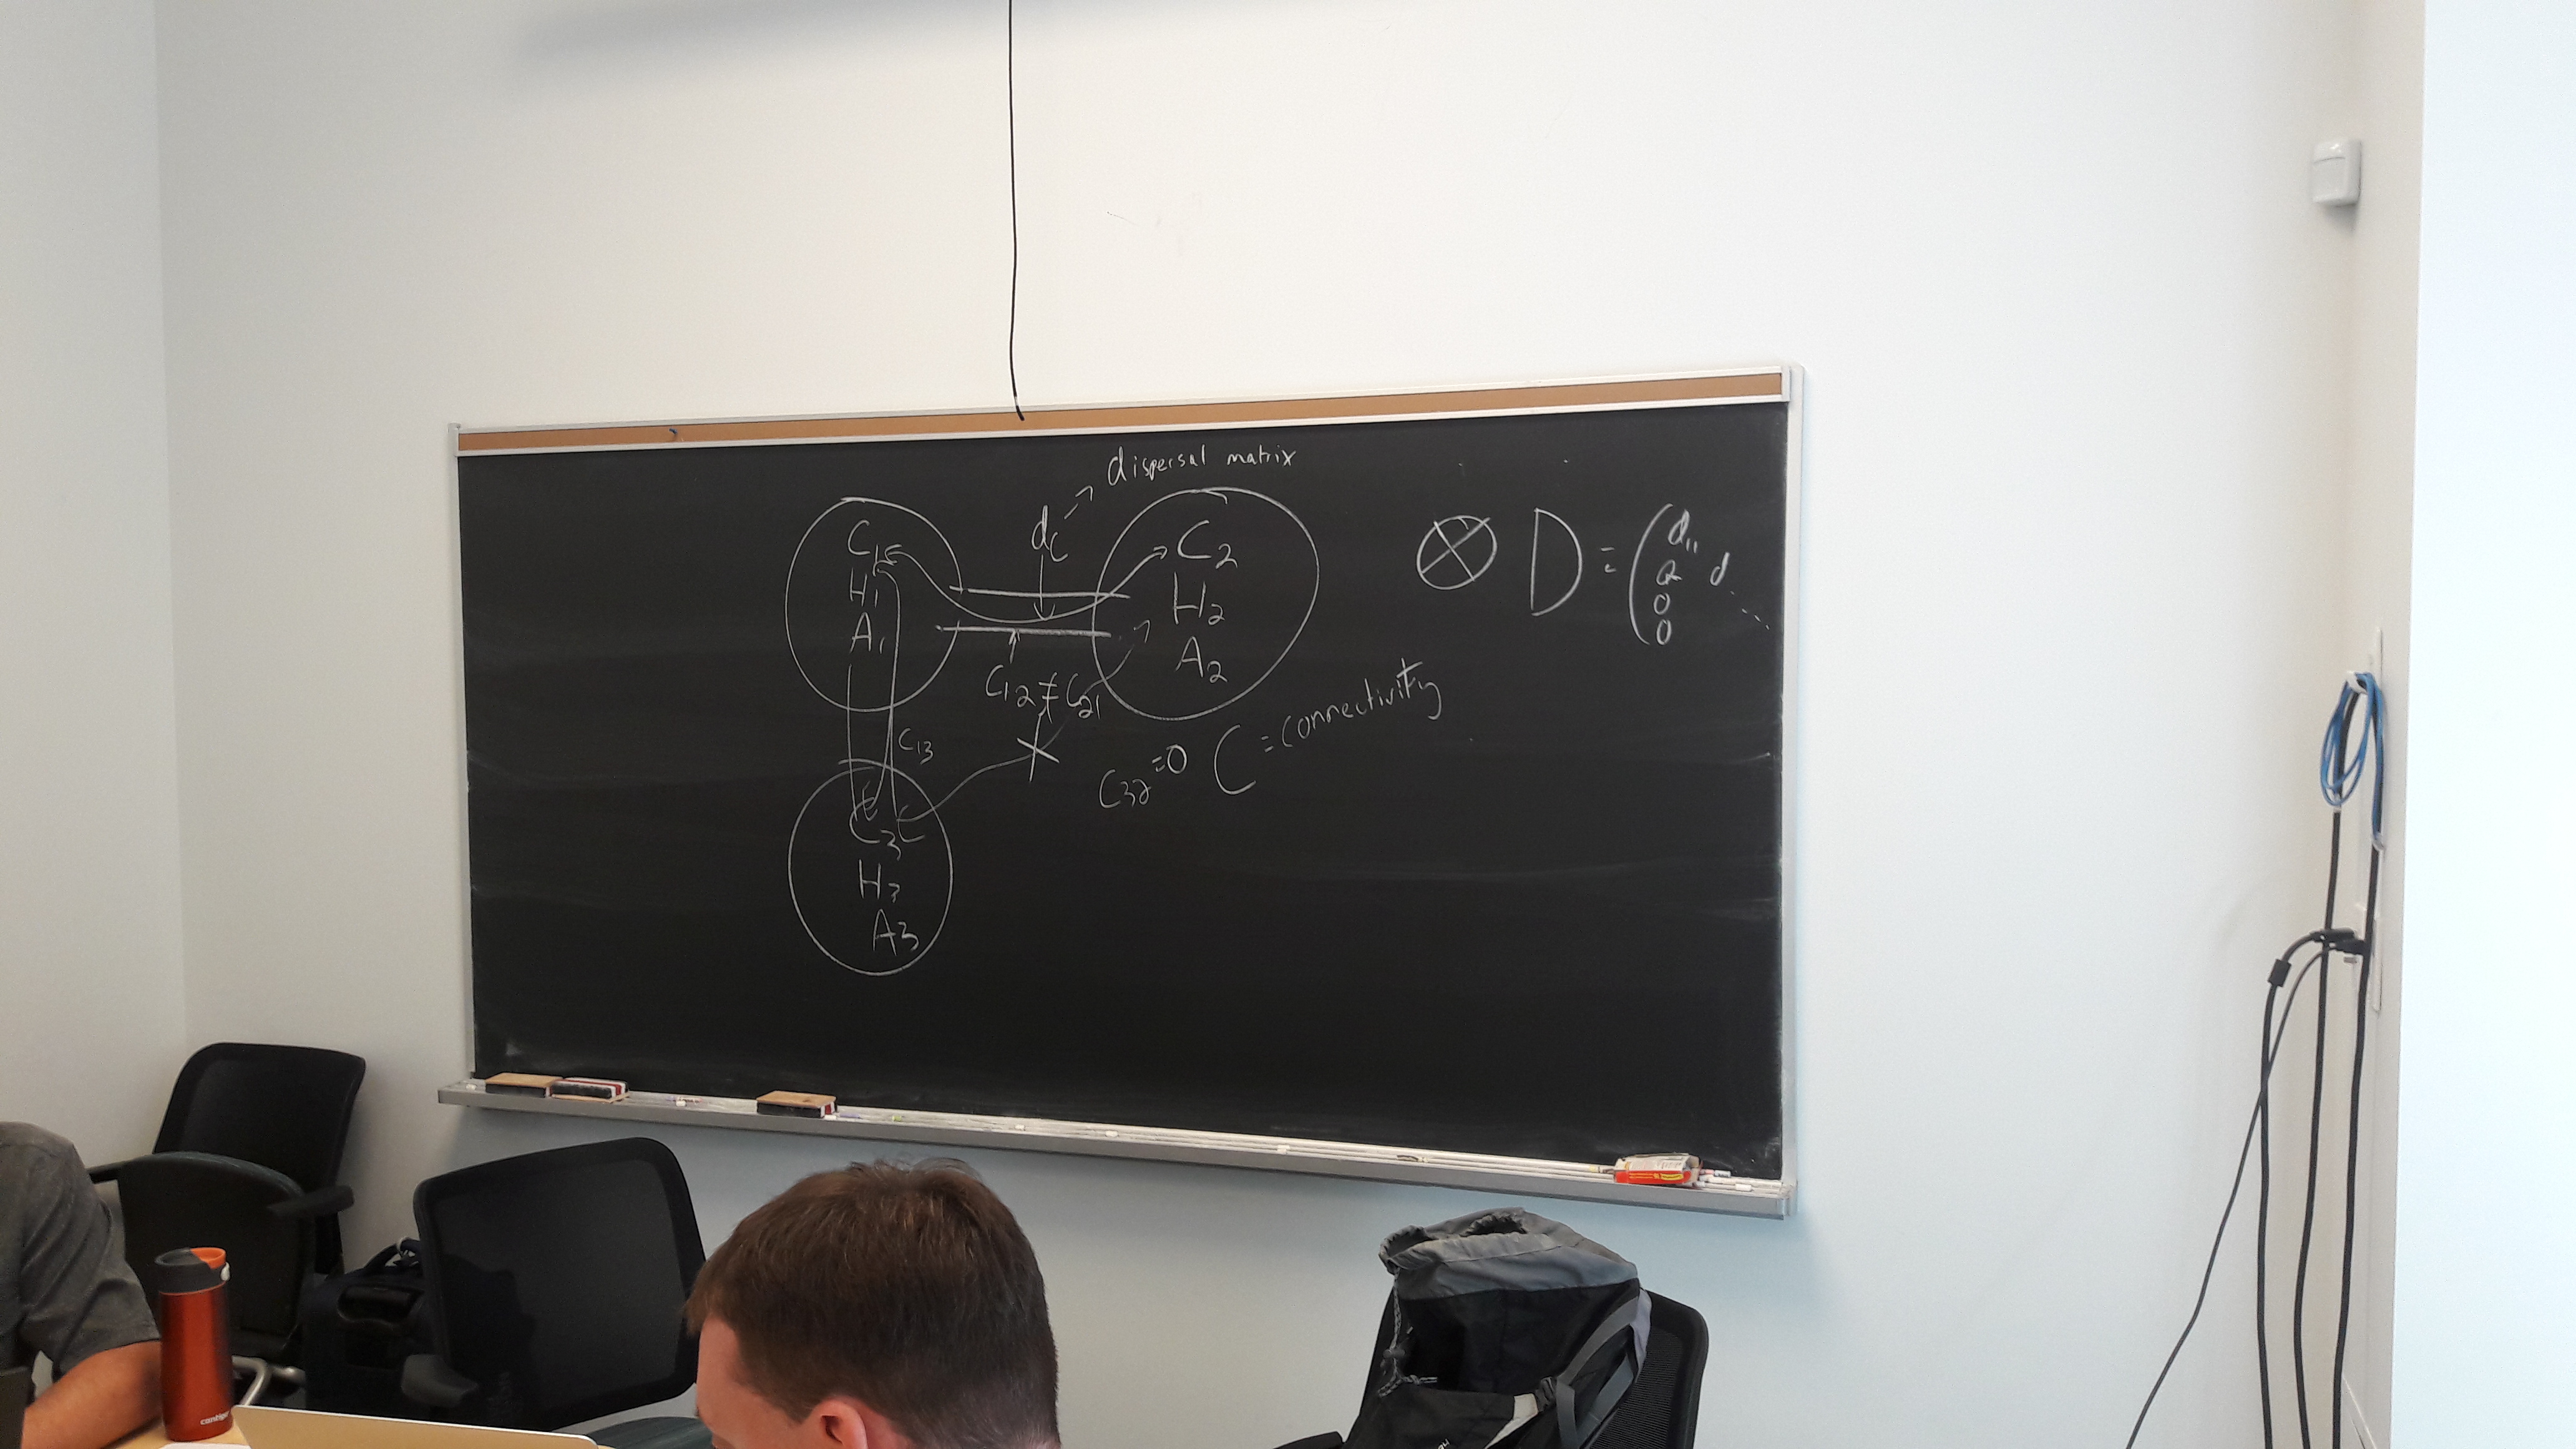 dispersal matrix
d_c
C₁
H₁
A₁
C₂
H₂
A₂
C₁₂ ≠ C₂₁
C₁₃
C₃₂ = 0
C = connectivity
C₃
H₃
A₃
⊗ D = ( d₁₁ d
0
0
contigo